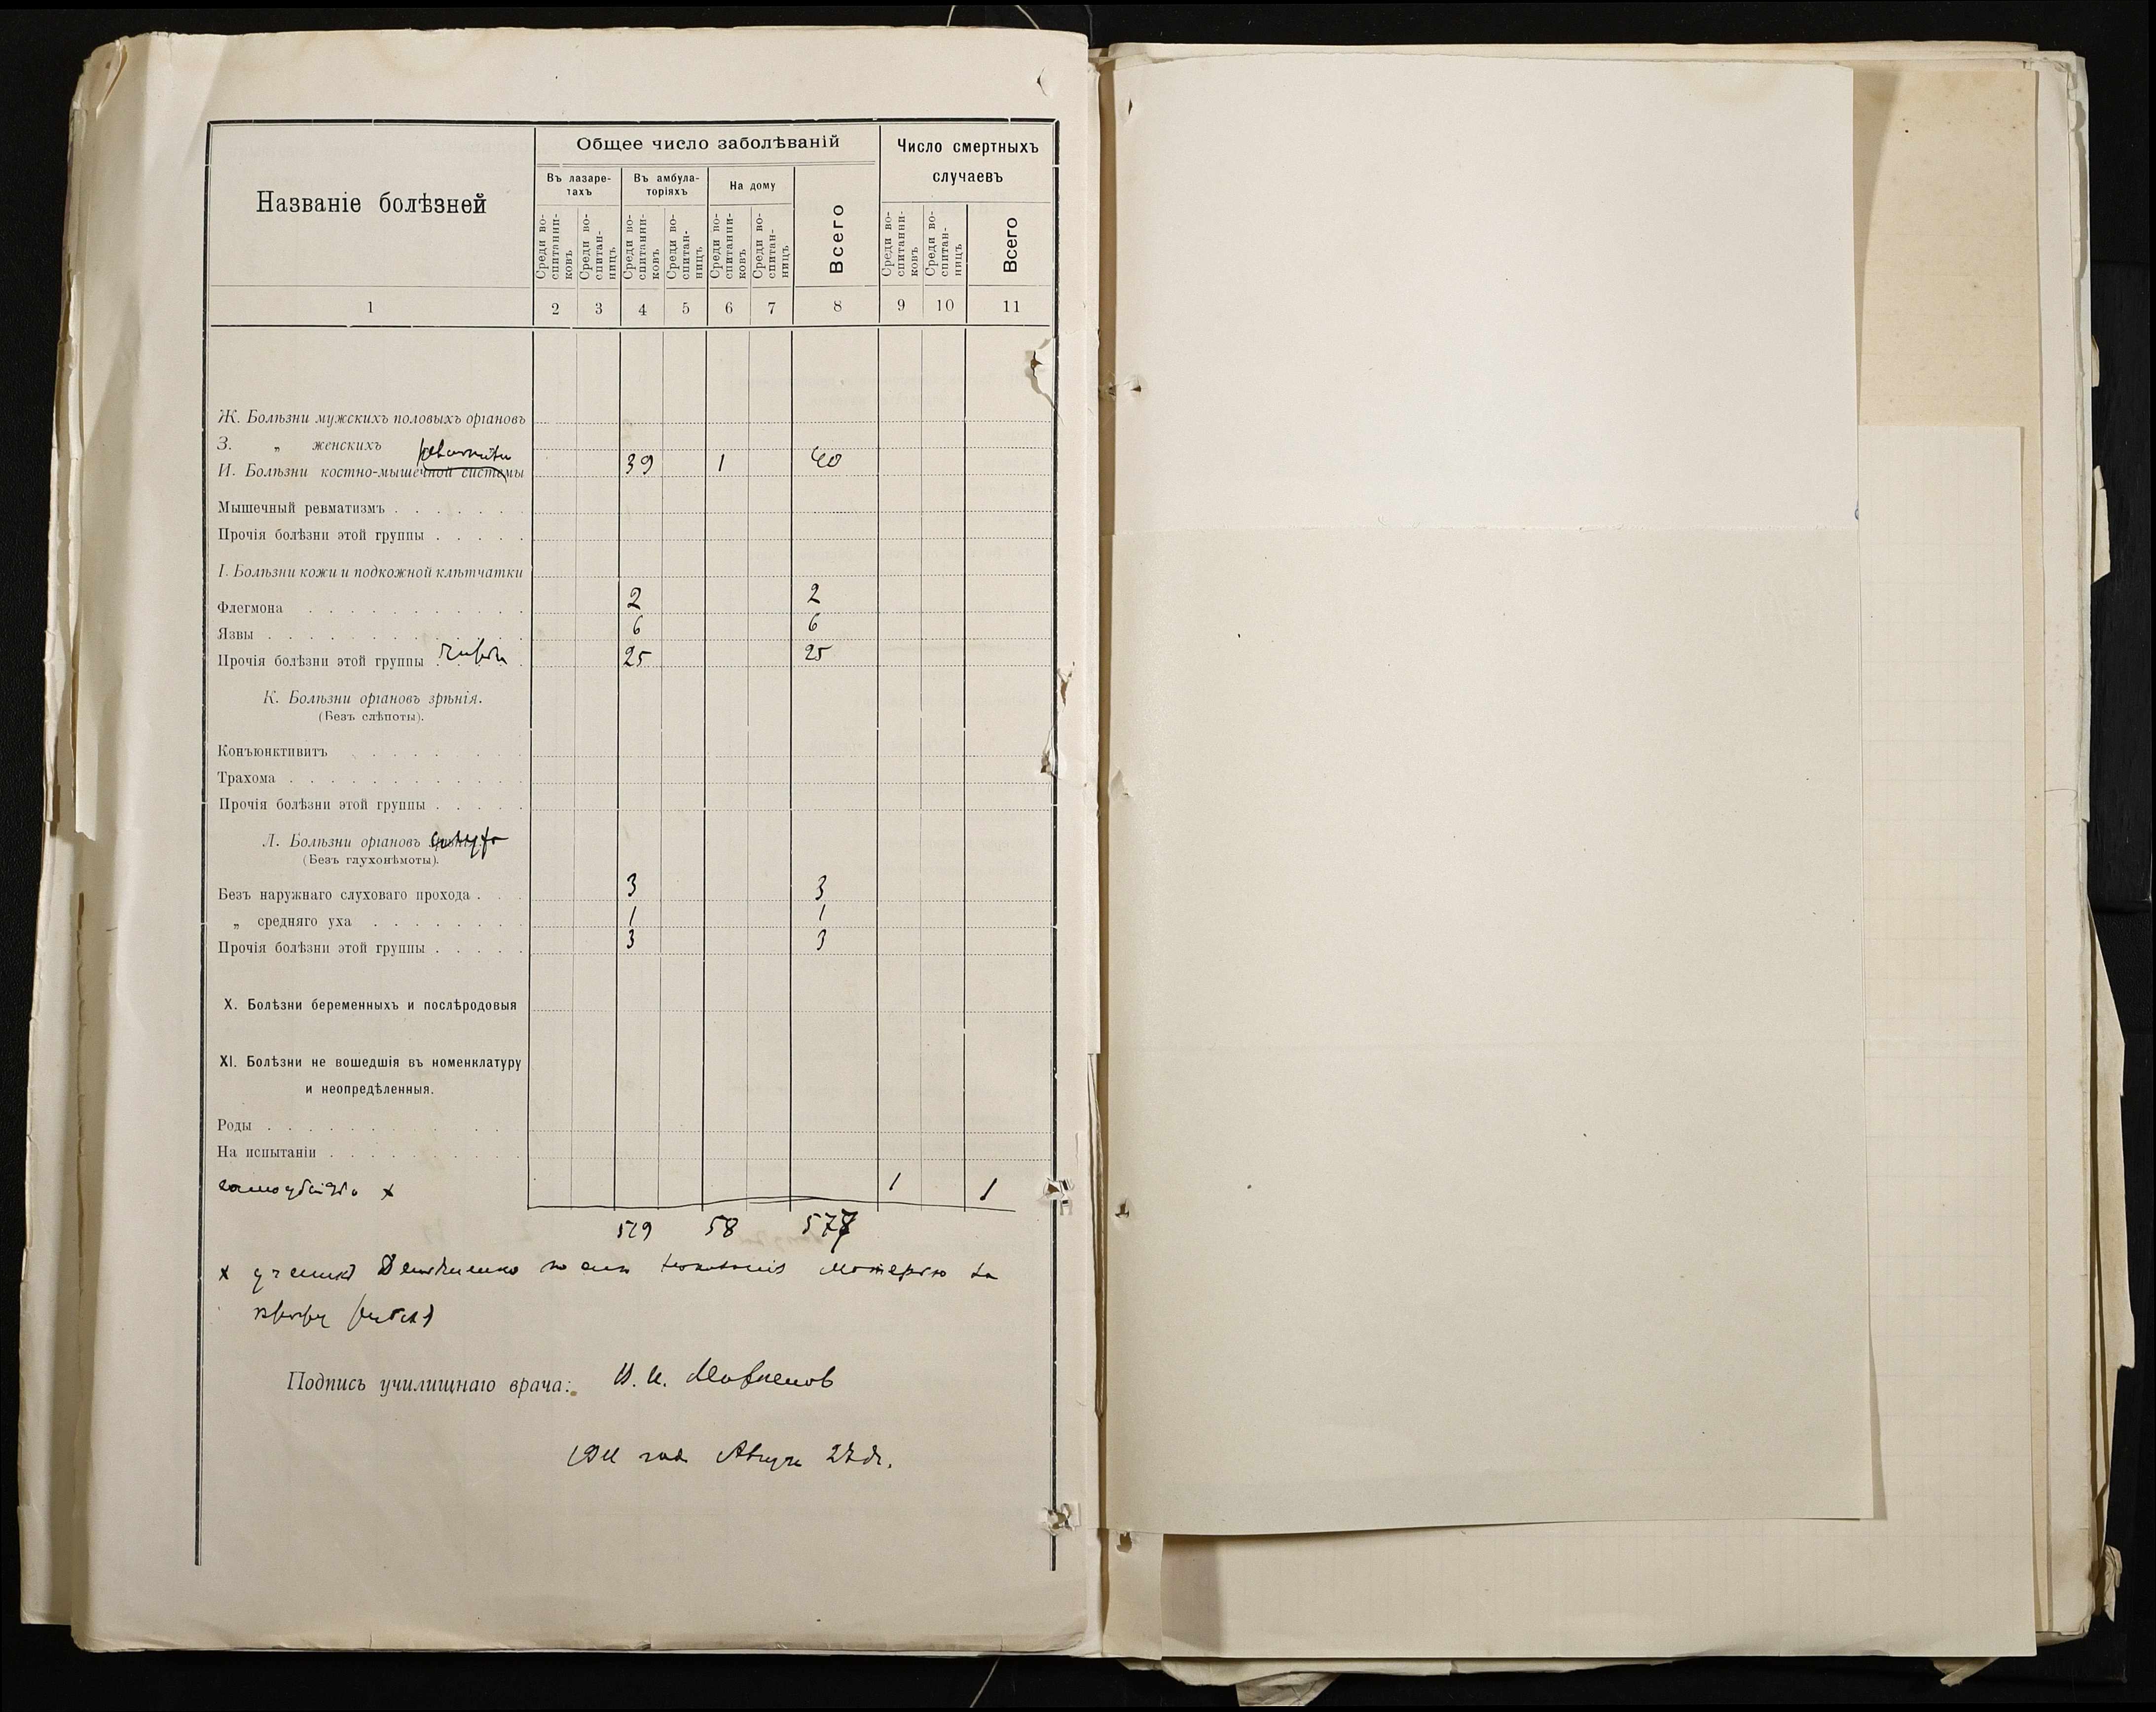 Названіе болѣзней
Общее число заболѣваній
Число смертныхъ
случаевъ
Въ лазаре-
тахъ
Въ амбула-
торіяхъ
На дому
Всего
Среди во-
спитанни-
ковъ
Среди во-
спитан-
ницъ
Среди во-
спитанни-
ковъ
Среди во-
спитан-
ницъ
Среди во-
спитанни-
ковъ
Среди во-
спитан-
ницъ
Среди во-
спитанни-
ковъ
Среди во-
спитан-
ницъ
Всего
1 2 3 4 5 6 7 8 9 10 11
Ж. Болѣзни мужскихъ половыхъ органовъ
З. „ женскихъ
И. Болѣзни костно-мышечной системы 39 1 40
Мышечный ревматизмъ
Прочія болѣзни этой группы
I. Болѣзни кожи и подкожной клѣтчатки
Флегмона 2 2
Язвы 6 6
Прочія болѣзни этой группы 25 25
К. Болѣзни органовъ зрѣнія.
(Безъ слѣпоты).
Конъюнктивитъ
Трахома
Прочія болѣзни этой группы
Л. Болѣзни органовъ
(Безъ глухонѣмоты).
Безъ наружнаго слуховаго прохода 3 3
„ средняго уха 1 1
Прочія болѣзни этой группы 3 3
X. Болѣзни беременныхъ и послѣродовыя
XI. Болѣзни не вошедшія въ номенклатуру
и неопредѣленныя.
Роды
На испытаніи
самоубійство x 1 1
519 58 577
x ученикъ матерью за
Подпись училищнаго врача:
1911 года Августа 27 д.